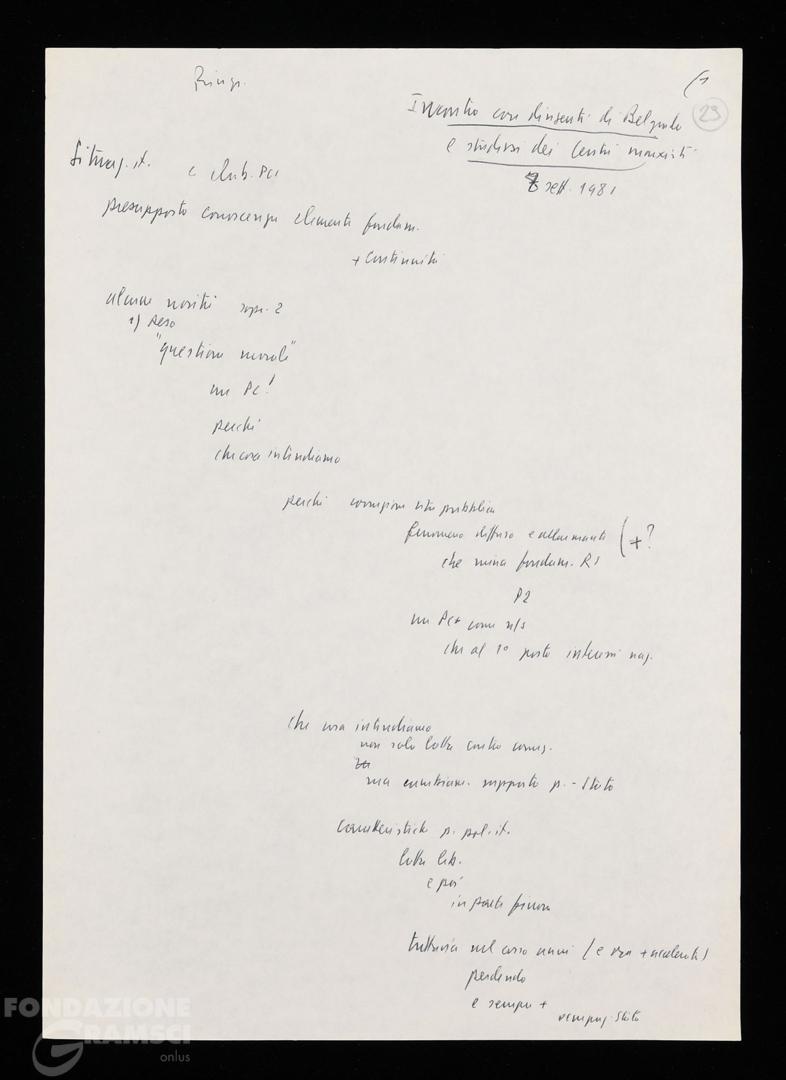 Ringr.
(1
29
Incontro con dirigenti di Belgrado
e studiosi dei Centri marxisti
7 sett. 1981
Situaz. it. e elab. PCI
presupposto conoscenza elementi fondam.
+ continuità
alcune novità sopr. 2
1) peso
"questione morale"
un PC!
perché
che cosa intendiamo
perché corruzione vita pubblica
fenomeno diffuso e allarmante (+?
che mina fondam. RI
P2
un PC come n/s
che al 1° posto interessi naz.
che cosa intendiamo
non solo lotta contro corruz.
ma cambiam. rapporto p. - Stato
caratteristiche p. pol. it.
lotta lib.
e poi
in parte finora
tuttavia nel corso anni (e ora + accelerato)
perdendo
e sempre +
occupaz. Stato
FONDAZIONE
GRAMSCI
onlus